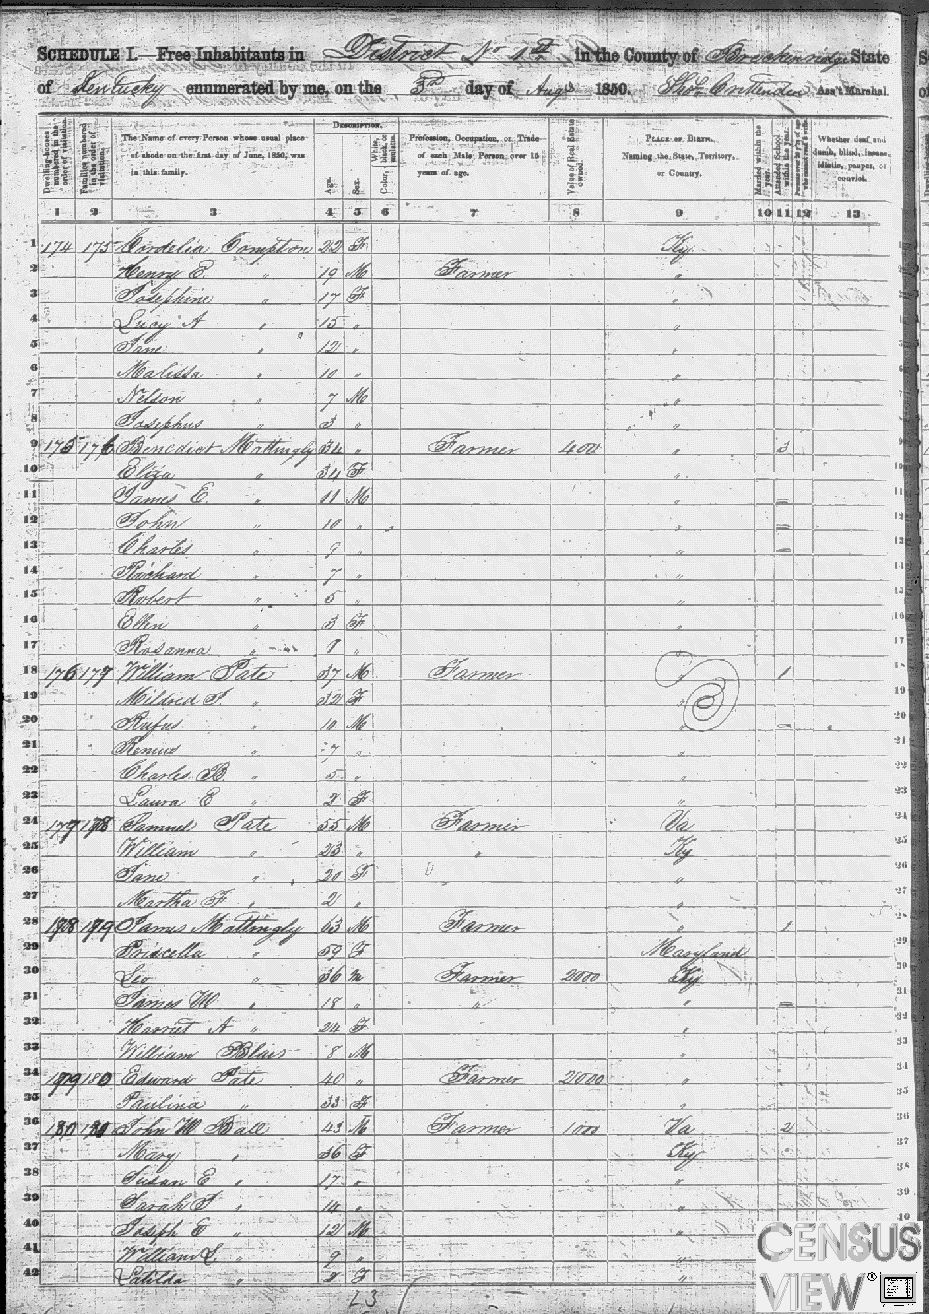 SCHEDULE I.—Free Inhabitants in District No 1st in the County of Breckenridge State
of Kentucky enumerated by me, on the 3rd day of Augst 1850. Thos Crittenden Ass't Marshal.
Dwelling-houses numbered in the order of visitation.
Families numbered in the order of visitation.
The Name of every Person whose usual place of abode on the first day of June, 1850, was in this family.
DESCRIPTION.
Age.
Sex.
Color, White, black, or mulatto.
Profession, Occupation, or Trade of each Male Person, over 15 years of age.
Value of Real Estate owned.
PLACE OF BIRTH. Naming the State, Territory, or Country.
Married within the year.
Attended School within the year.
Persons over 20 y'rs of age who cannot read & write.
Whether deaf and dumb, blind, insane, idiotic, pauper, or convict.
1 2 3 4 5 6 7 8 9 10 11 12 13
1 174 175 Cordelia Compton 22 F Ky
2 Henry E. " 19 M Farmer "
3 Josephine " 17 F "
4 Lucy A " 15 " "
5 Jane " 12 " "
6 Malissa " 10 " "
7 Nelson " 7 M "
8 Josephus " 3 " "
9 175 176 Benedict Mattingly 34 " Farmer 400 " 3
10 Eliza " 34 F "
11 James E. " 11 M "
12 John " 10 " "
13 Charles " 9 " "
14 Richard " 7 " "
15 Robert " 5 " "
16 Ellen " 3 F "
17 Rosanna " "
18 176 177 William Pate 37 M Farmer " 1
19 Mildred J. " 32 F "
20 Rufus " 10 M "
21 " 7 " "
22 Charles B. " 5 " "
23 Laura E " 2 F "
24 177 178 Samuel Pate 55 M Farmer Va
25 William " 23 " " Ky
26 Jane " 20 F "
27 Martha F " 2 " "
28 178 179 James Mattingly 63 M Farmer " 1
29 Priscella " 59 F Maryland
30 Leo " 36 M Farmer 2000 Ky
31 James W " 18 " " "
32 Harriet A " 24 F "
33 William Blair 8 M "
34 179 180 Edward Pate 40 " Farmer 2000 "
35 Paulina " 33 F "
36 180 John W Ball 43 M Farmer 1000 Va 2
37 Mary " 36 F Ky
38 Susan E " 17 " "
39 Sarah J " 14 " "
40 Joseph E " 12 M "
41 William L " 9 " "
42 " 2 F "
CENSUS
VIEW®